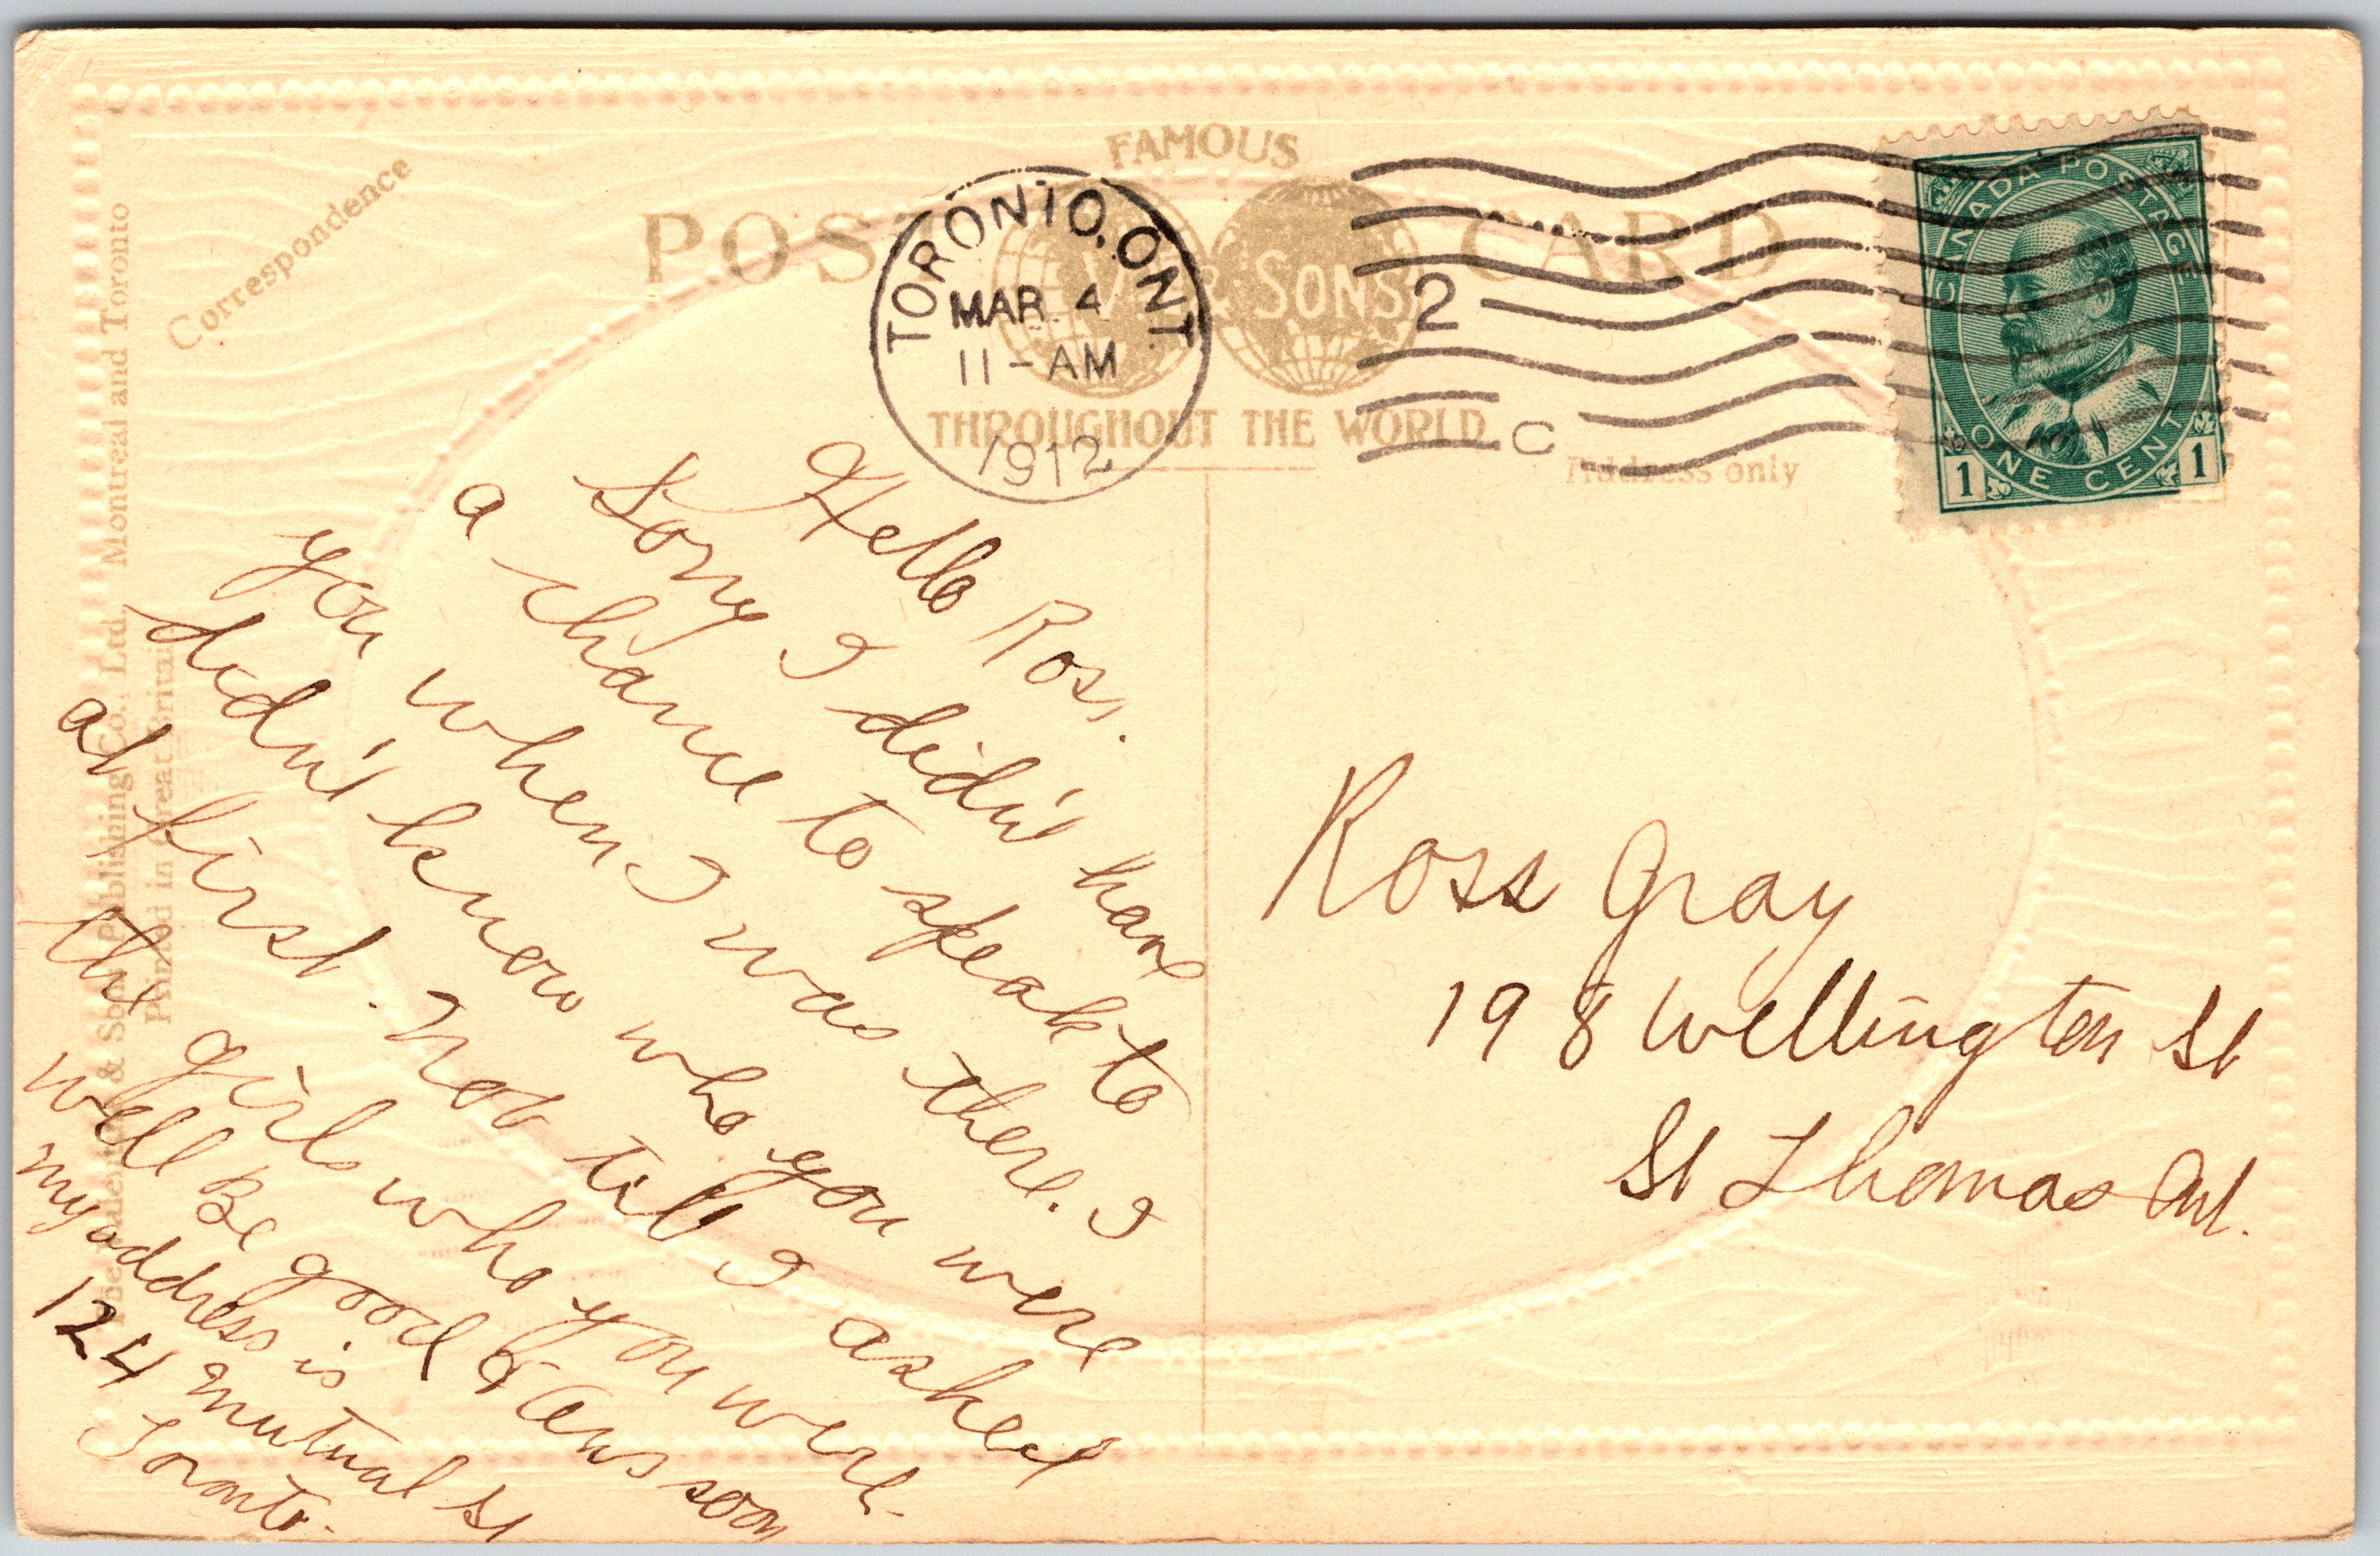 FAMOUS
POST CARD
& SONS
THROUGHOUT THE WORLD
Correspondence
Address only
Publishing Co., Ltd., Montreal and Toronto
Printed in Great Britain
TORONTO, ONT.
MAR. 4
11-AM
1912
2
C
CANADA POSTAGE
ONE CENT
1 1
Hello Ross.
Sorry I didn't have
a chance to speak to
you when I was there. I
didn't know who you were
at first. Not till I asked
the girls who you were.
Well Be good & Ans soon
my address is
124 Mutual St
Toronto.
Ross Gray
198 Wellington St
St Thomas Ont.